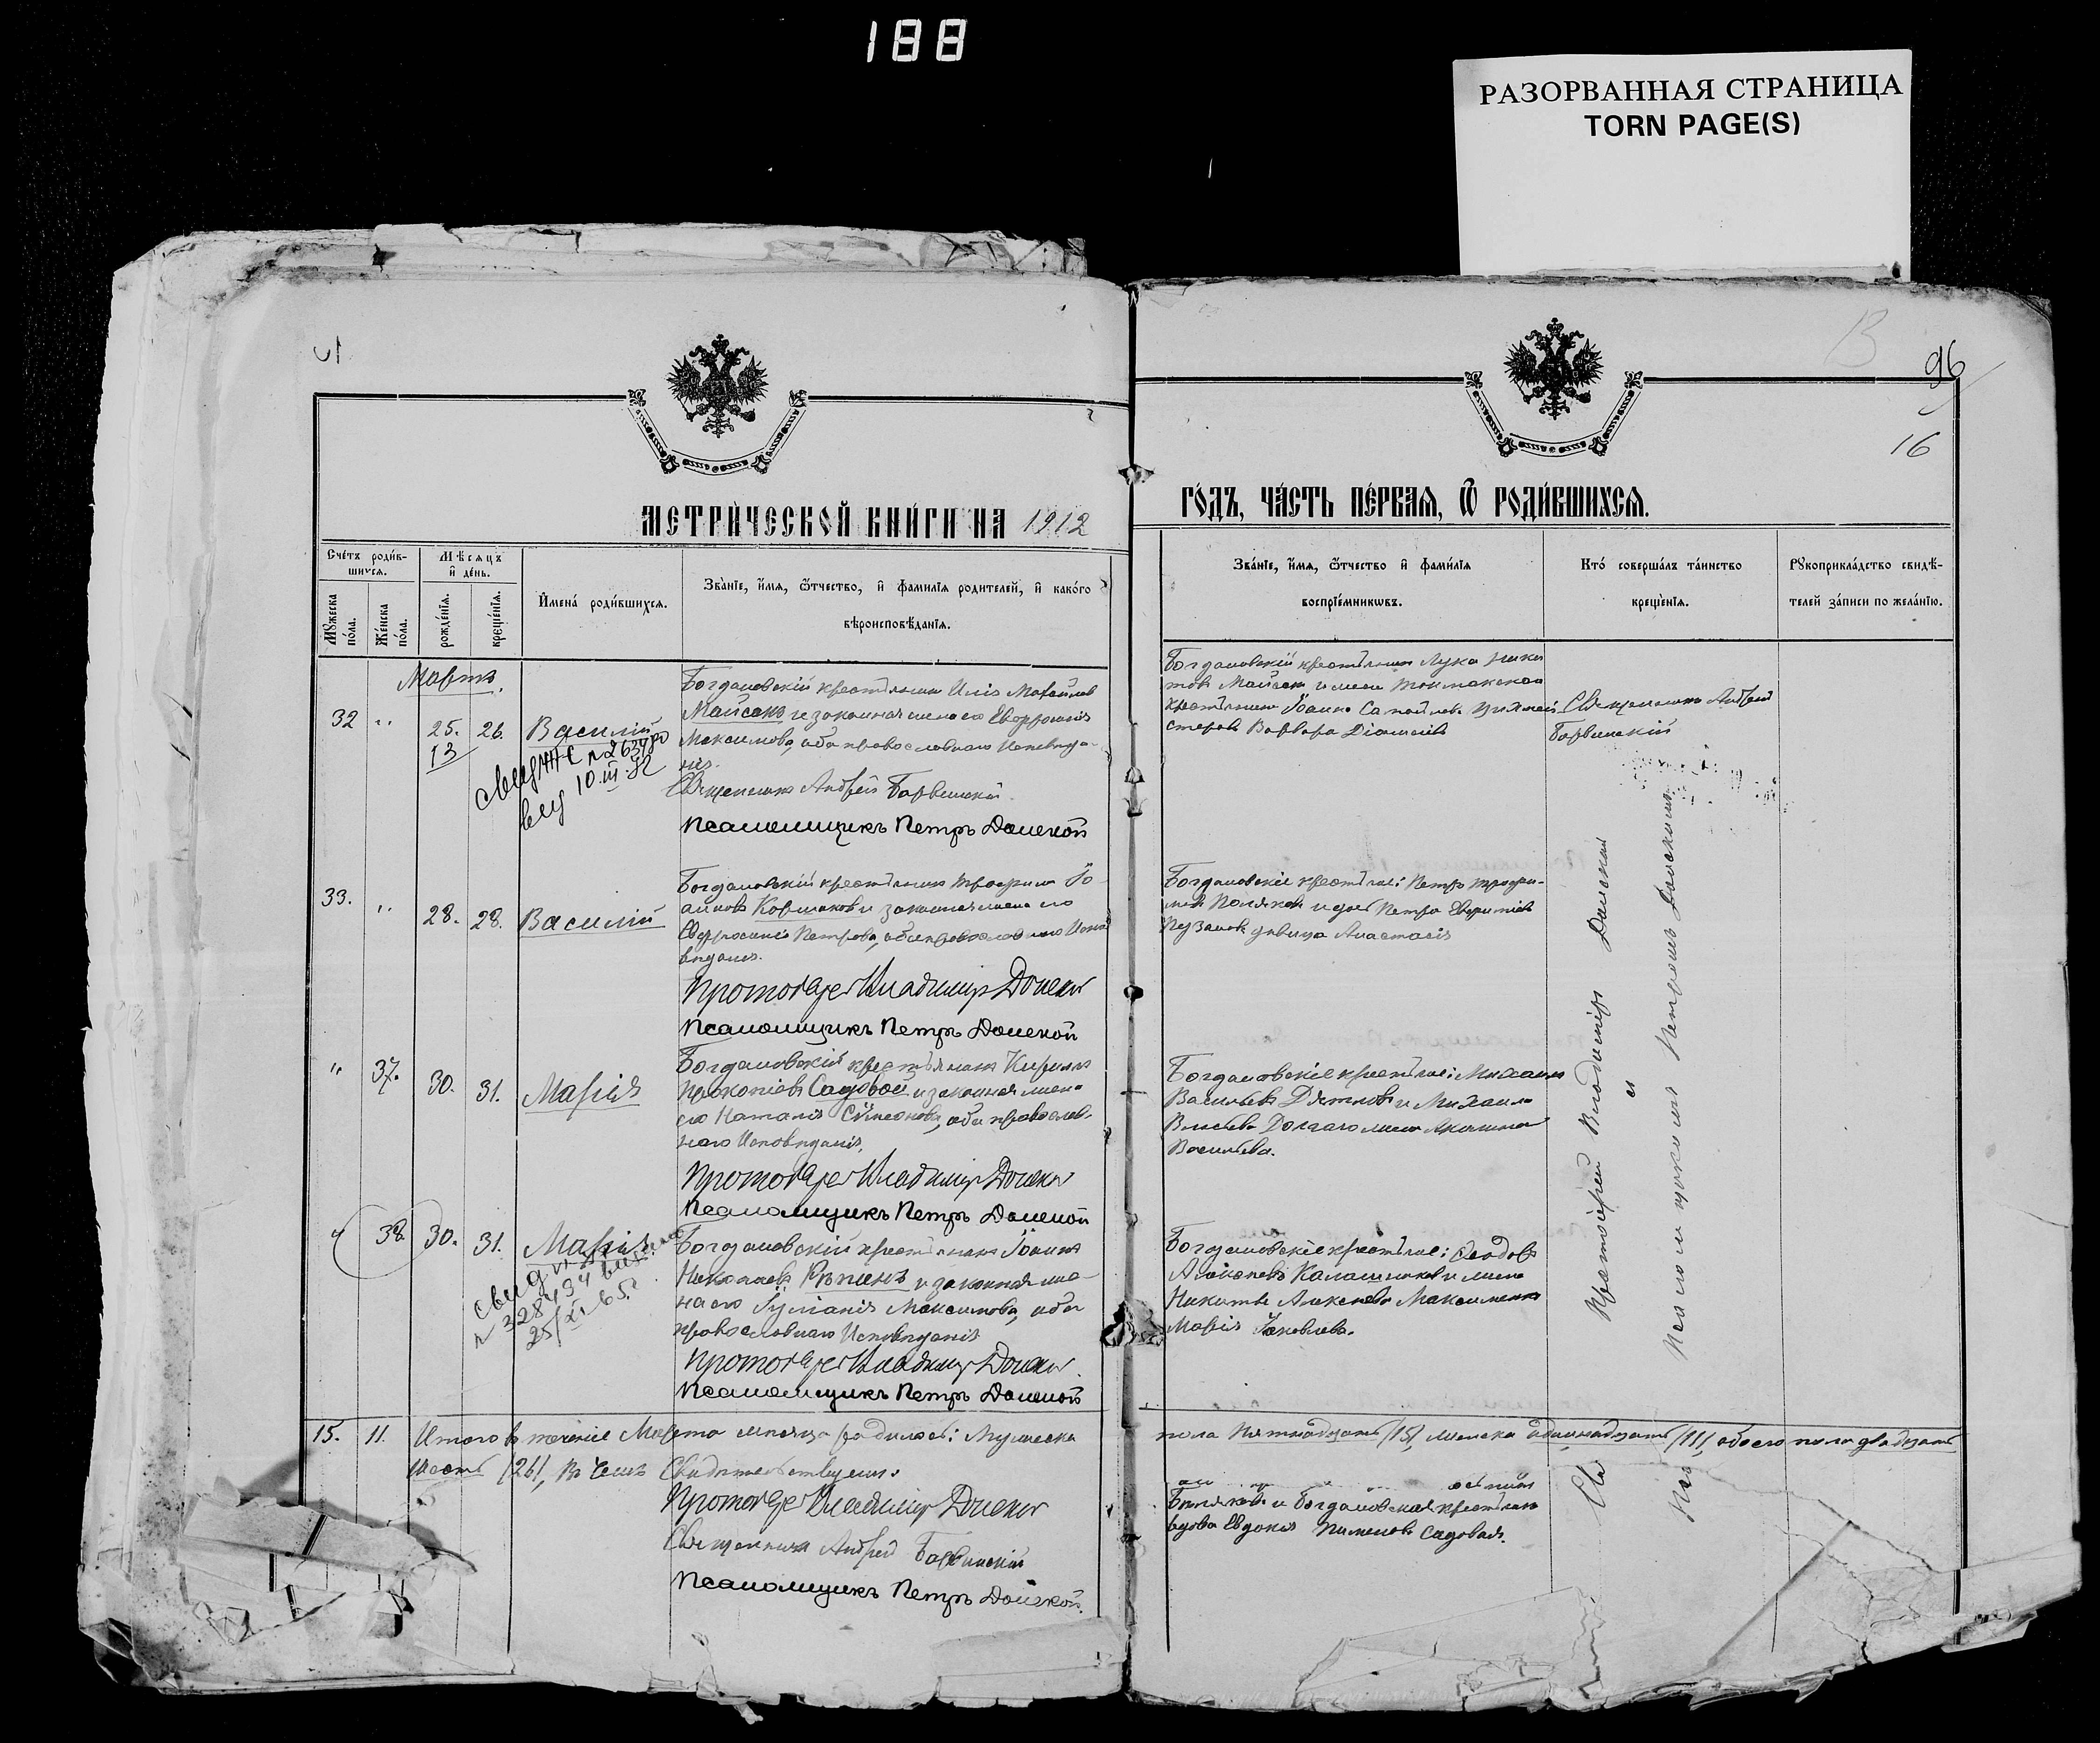 188
РАЗОРВАННАЯ СТРАНИЦА
TORN PAGE(S)
96
16
МЕТРИ́ЧЕСКОЙ КНИ́ГИ НА 1912
ГО́ДЪ, ЧА́СТЬ ПЕ́РВАѦ, Ѿ РОДИ́ВШИХСѦ.
Счётъ роди́в-
шихся.
Мѣсяцъ
и де́нь.
Мꙋ́жеска по́ла.
Же́нска по́ла.
рожде́нїя.
креще́нїя.
Имена́ роди́вшихся.
Зва́нїе, и́мя, ѻ́тчество, и фамилїя родителей, и како́го
вѣроисповѣ́данїя.
Зва́нїе, и́мя, ѻ́тчество и фами́лїя
воспрїе́мникѡвъ.
Кто́ соверша́лъ та́инство
креще́нїя.
Рꙋкоприкла́дство свидѣ́-
телей за́писи по жела́нїю.
Мартъ.
32 " 25. 26. Василій
13
10.III.
Богдановскій крестьянинъ Илія Михайловъ
Майсакъ и законная жена его Евфросинія
Максимова, оба православнаго Исповѣда-
нія.
Священникъ Андрей Барвинскій
Псаломщикъ Петръ Донской
Богдановскій крестьянинъ Лука Ники
товъ Майсакъ и жена Токмакскаго
крестьянина Іоанна
Варвара
Священникъ Андрей
Барвинскій
33. " 28. 28. Василій
Богдановскій крестьянинъ Трофимъ Іо-
анновъ Коршаковъ и законная жена его
Евфросинія Петрова, оба православнаго Испо
вѣданія.
Протоіерей Владиміръ Донской
Псаломщикъ Петръ Донской
Богдановскіе крестьяне: Петръ Трофи-
мовъ Поляковъ и Петра
дѣвица Анастасія
" 37. 30. 31. Марія
Богдановскій крестьянинъ Кириллъ
Прокопіевъ Садовой и законная жена
его Наталія Сѵмеонова, оба православ-
наго Исповѣданія.
Протоіерей Владиміръ Донской
Псаломщикъ Петръ Донской
Богдановскіе крестьяне: Михаилъ
Васильевъ Дятловъ и Михаила
Долгаго жена Акилина
Васильева.
" 38. 30. 31. Марія
Богдановскій крестьянинъ Іоаннъ
Николаевъ Рѣпинъ и законная же-
на его Іуліанія Максимова, оба
православнаго Исповѣданія
Протоіерей Владиміръ Донской
Псаломщикъ Петръ Донской
Богдановскіе крестьяне: Ѳеодоръ
Алексѣевъ Калашниковъ и жена
Никиты Алексѣева Максименка
Марія Яковлева.
Протоіерей Владиміръ Донской
и
Псаломщикомъ Петромъ Донскимъ.
15. 11. Итого въ теченіе Марта мѣсяца родилось: Мужеска
пола Пятнадцать (15), женска одиннадцать (11), обоего пола двадцать
шесть (26), въ чемъ Свидѣтельствуемъ:
Протоіерей Владиміръ Донской
Священникъ Андрей Барвинскій
Псаломщикъ Петръ Донской.
и Богдановская крестьянка
вдова Евдокія Пименова Садовая.